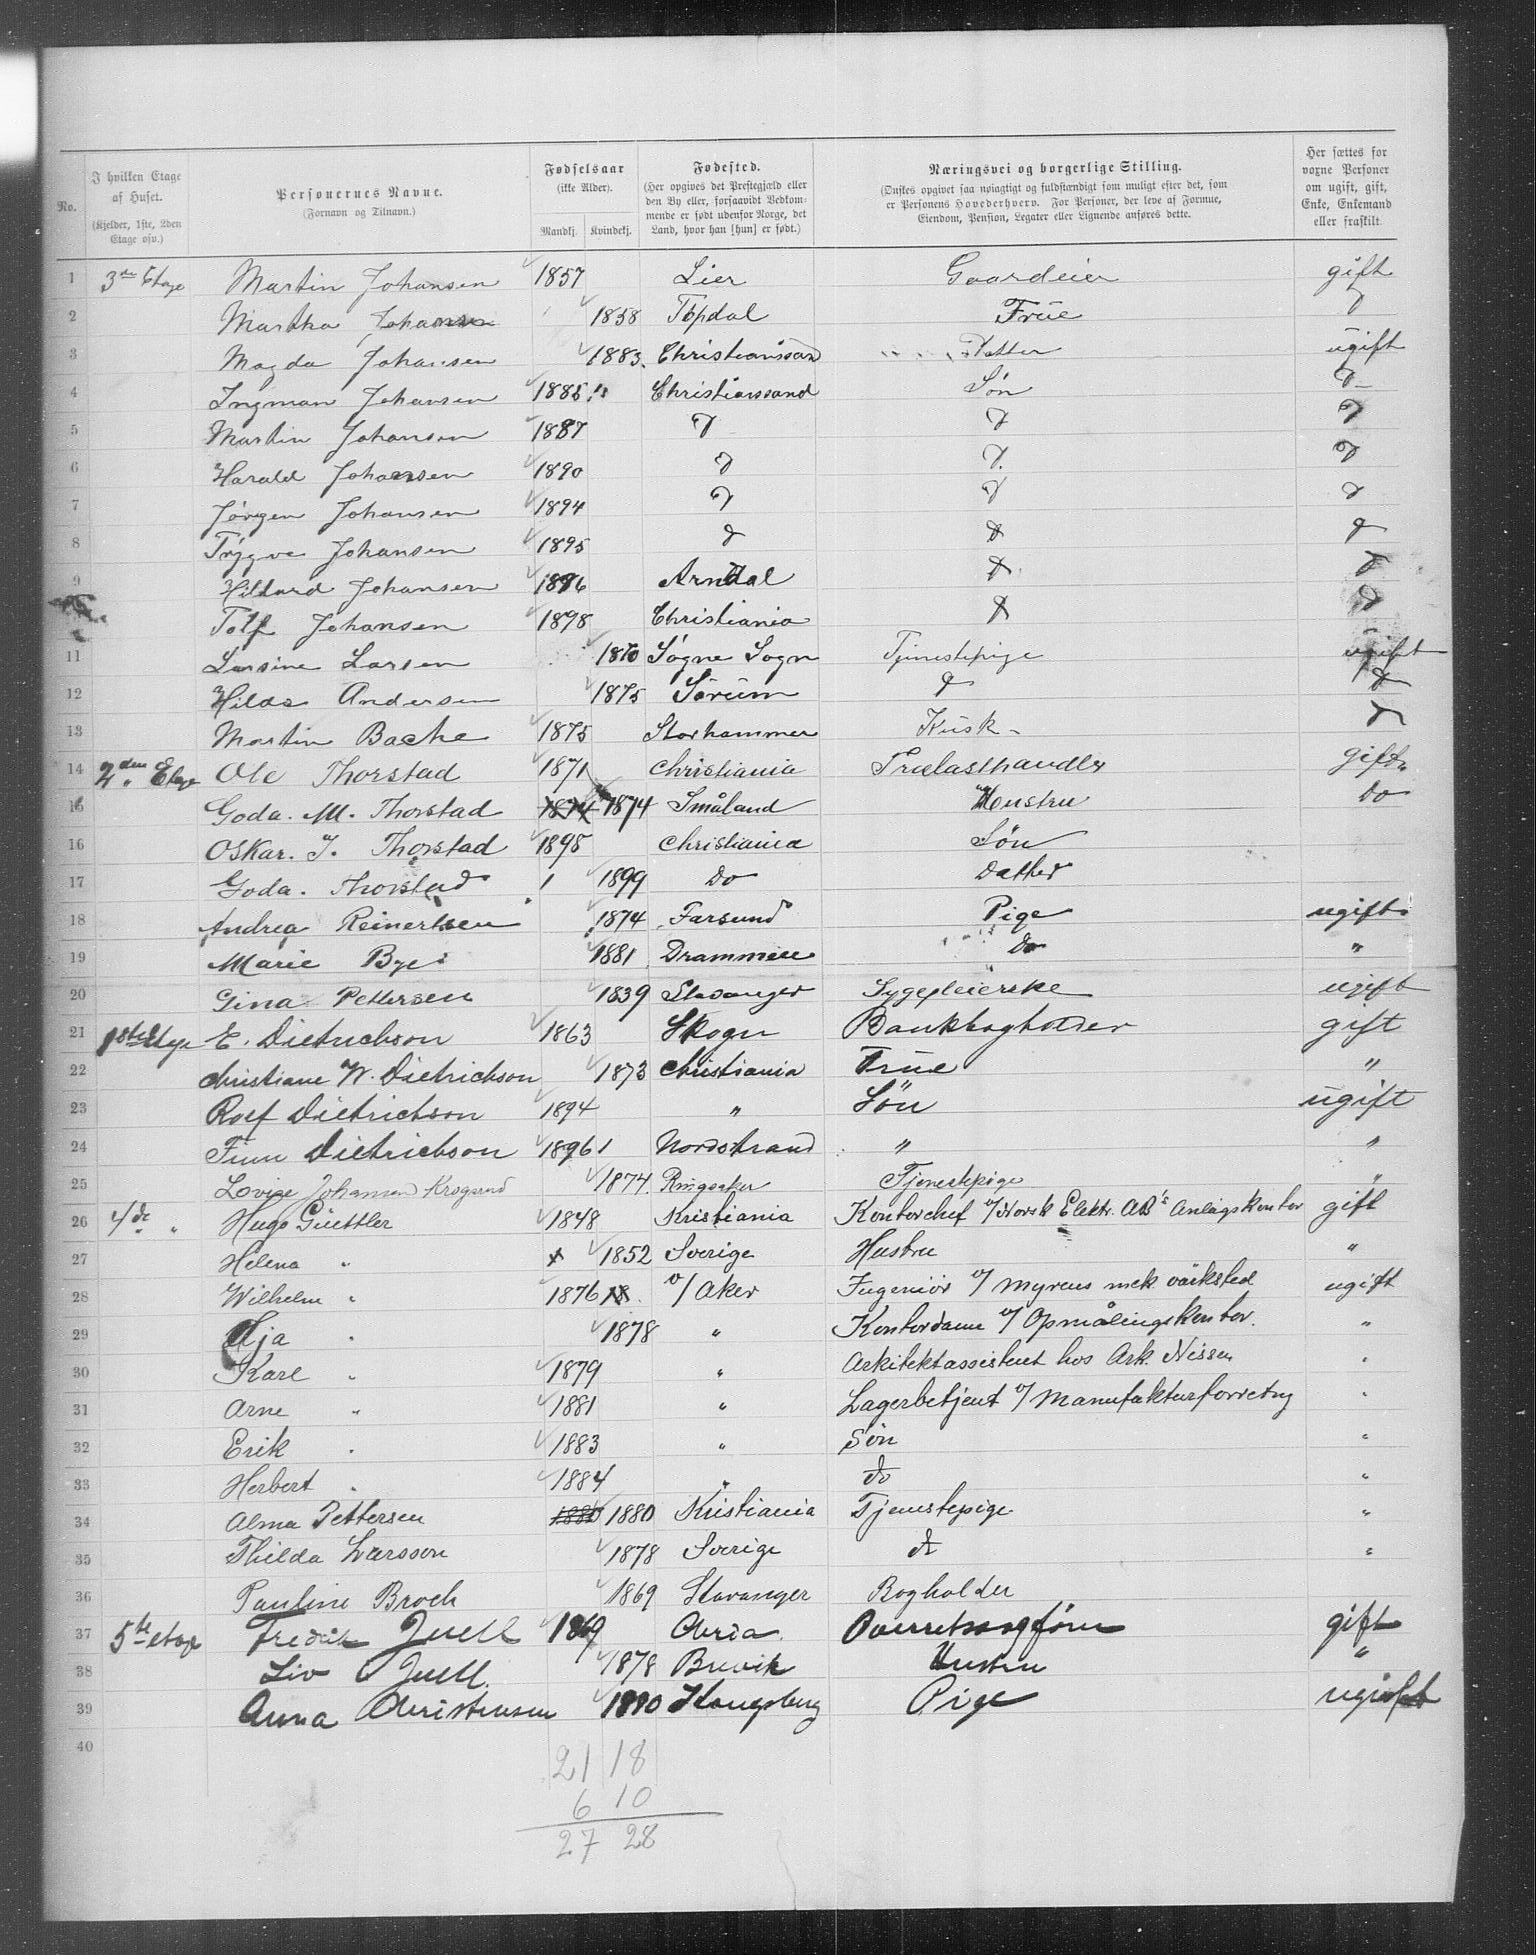 No.
I hvilken Etage af Huset. (Kjelder, 1ste, 2den Etage osv.)
Personernes Navne. (Fornavn og Tilnavn.)
Fødselsaar (ikke Alder). Mandkj. Kvindekj.
Fødested. (Her opgives det Prestegjæld eller den By eller, forsaavidt Vedkommende er født udenfor Norge, det Land, hvor han [hun] er født.)
Næringsvei og borgerlige Stilling. (Ønskes opgivet saa nøiagtigt og fuldstændigt som muligt efter det, som er Personens Hovederhverv. For Personer, der leve af Formue, Eiendom, Pension, Legater eller Lignende anføres dette.)
Her sættes for vorne Personer om ugift, gift, Enke, Enkemand eller fraskilt.
1 3die Etage Martin Johansen 1857 Lier Gaardeier gift
2 Martha Johansen 1858 Topdal Frue
3 Magda Johansen 1883 Christianssand Datter ugift
4 Ingman Johansen 1885 Christianssand Søn do
5 Martin Johansen 1887 do do do
6 Harald Johansen 1890 do do do
7 Jørgen Johansen 1894 do do do
8 Trygve Johansen 1895 do do do
9 Hilbard Johansen 1896 Arndal do do
Tolf Johansen 1898 Christiania do do
11 Larsine Larsen 1870 Søgne Sogn Tjenestepige ugift
12 Hilda Andersen 1875 Sørum do do
13 Martin Bache 1875 Storhammer Kusk do
14 2den Etage Ole Thorstad 1871 Christiania Trælasthandler gift
15 Goda. M. Thorstad 1874 1874 Småland Houstru Do
16 Oskar. J. Thorstad 1898 Christiania Søn
17 Goda. Thorstad 1899 Do Datter
18 Andrea Reinertsen 1874 Farsund Pige ugift
19 Marie Bye 1881 Drammen Do "
20 Gina Pettersen 1839 Stavanger Sygepleierske ugift
21 1ste Etage E. Dietrichson 1863 Skogn Bankbogholder gift
22 Christiane W. Dietrichson 1873 Christiania Frue "
23 Rolf Dietrichson 1894 " Søn ugift
24 Finn Dietrichson 1896 Nordstrand " "
25 Lovise Johansen Krogsrud 1874 Ringsaker Tjenestepige "
26 4de " Hugo Güettler 1848 Kristiania Kontorchef v/ Norsk Elektr. AB's Anlægskontor gift
27 Helena " 1852 Sverige Hustru "
28 Wilhelm " 1876 18 v/ Aker Ingeniör v/ Myrens mek värksted ugift
29 Aja " 1878 " Kontordame v/ Opmålingskontor. "
30 Karl " 1879 " Arkitektassistent hos Ark. Nissen "
31 Arne " 1881 " Lagerbetjent v/ Manufakturforretng "
32 Erik " 1883 " Sön "
33 Herbert " 1884 " do "
34 Alma Pettersen 1880 1880 Kristiania Tjenestepige "
35 Thilda Larsson 1878 Sverige do "
36 Pauline Broch 1869 Stavanger Bogholder
37 5te etage Fredrik Juell 1869 Chria. Overretssagfører gift
38 Liv Juell. 1878 Brevik Hustru "
39 Anna Christensen 1880 Kongsberg Pige ugift
40
21 18
6 10
27 28